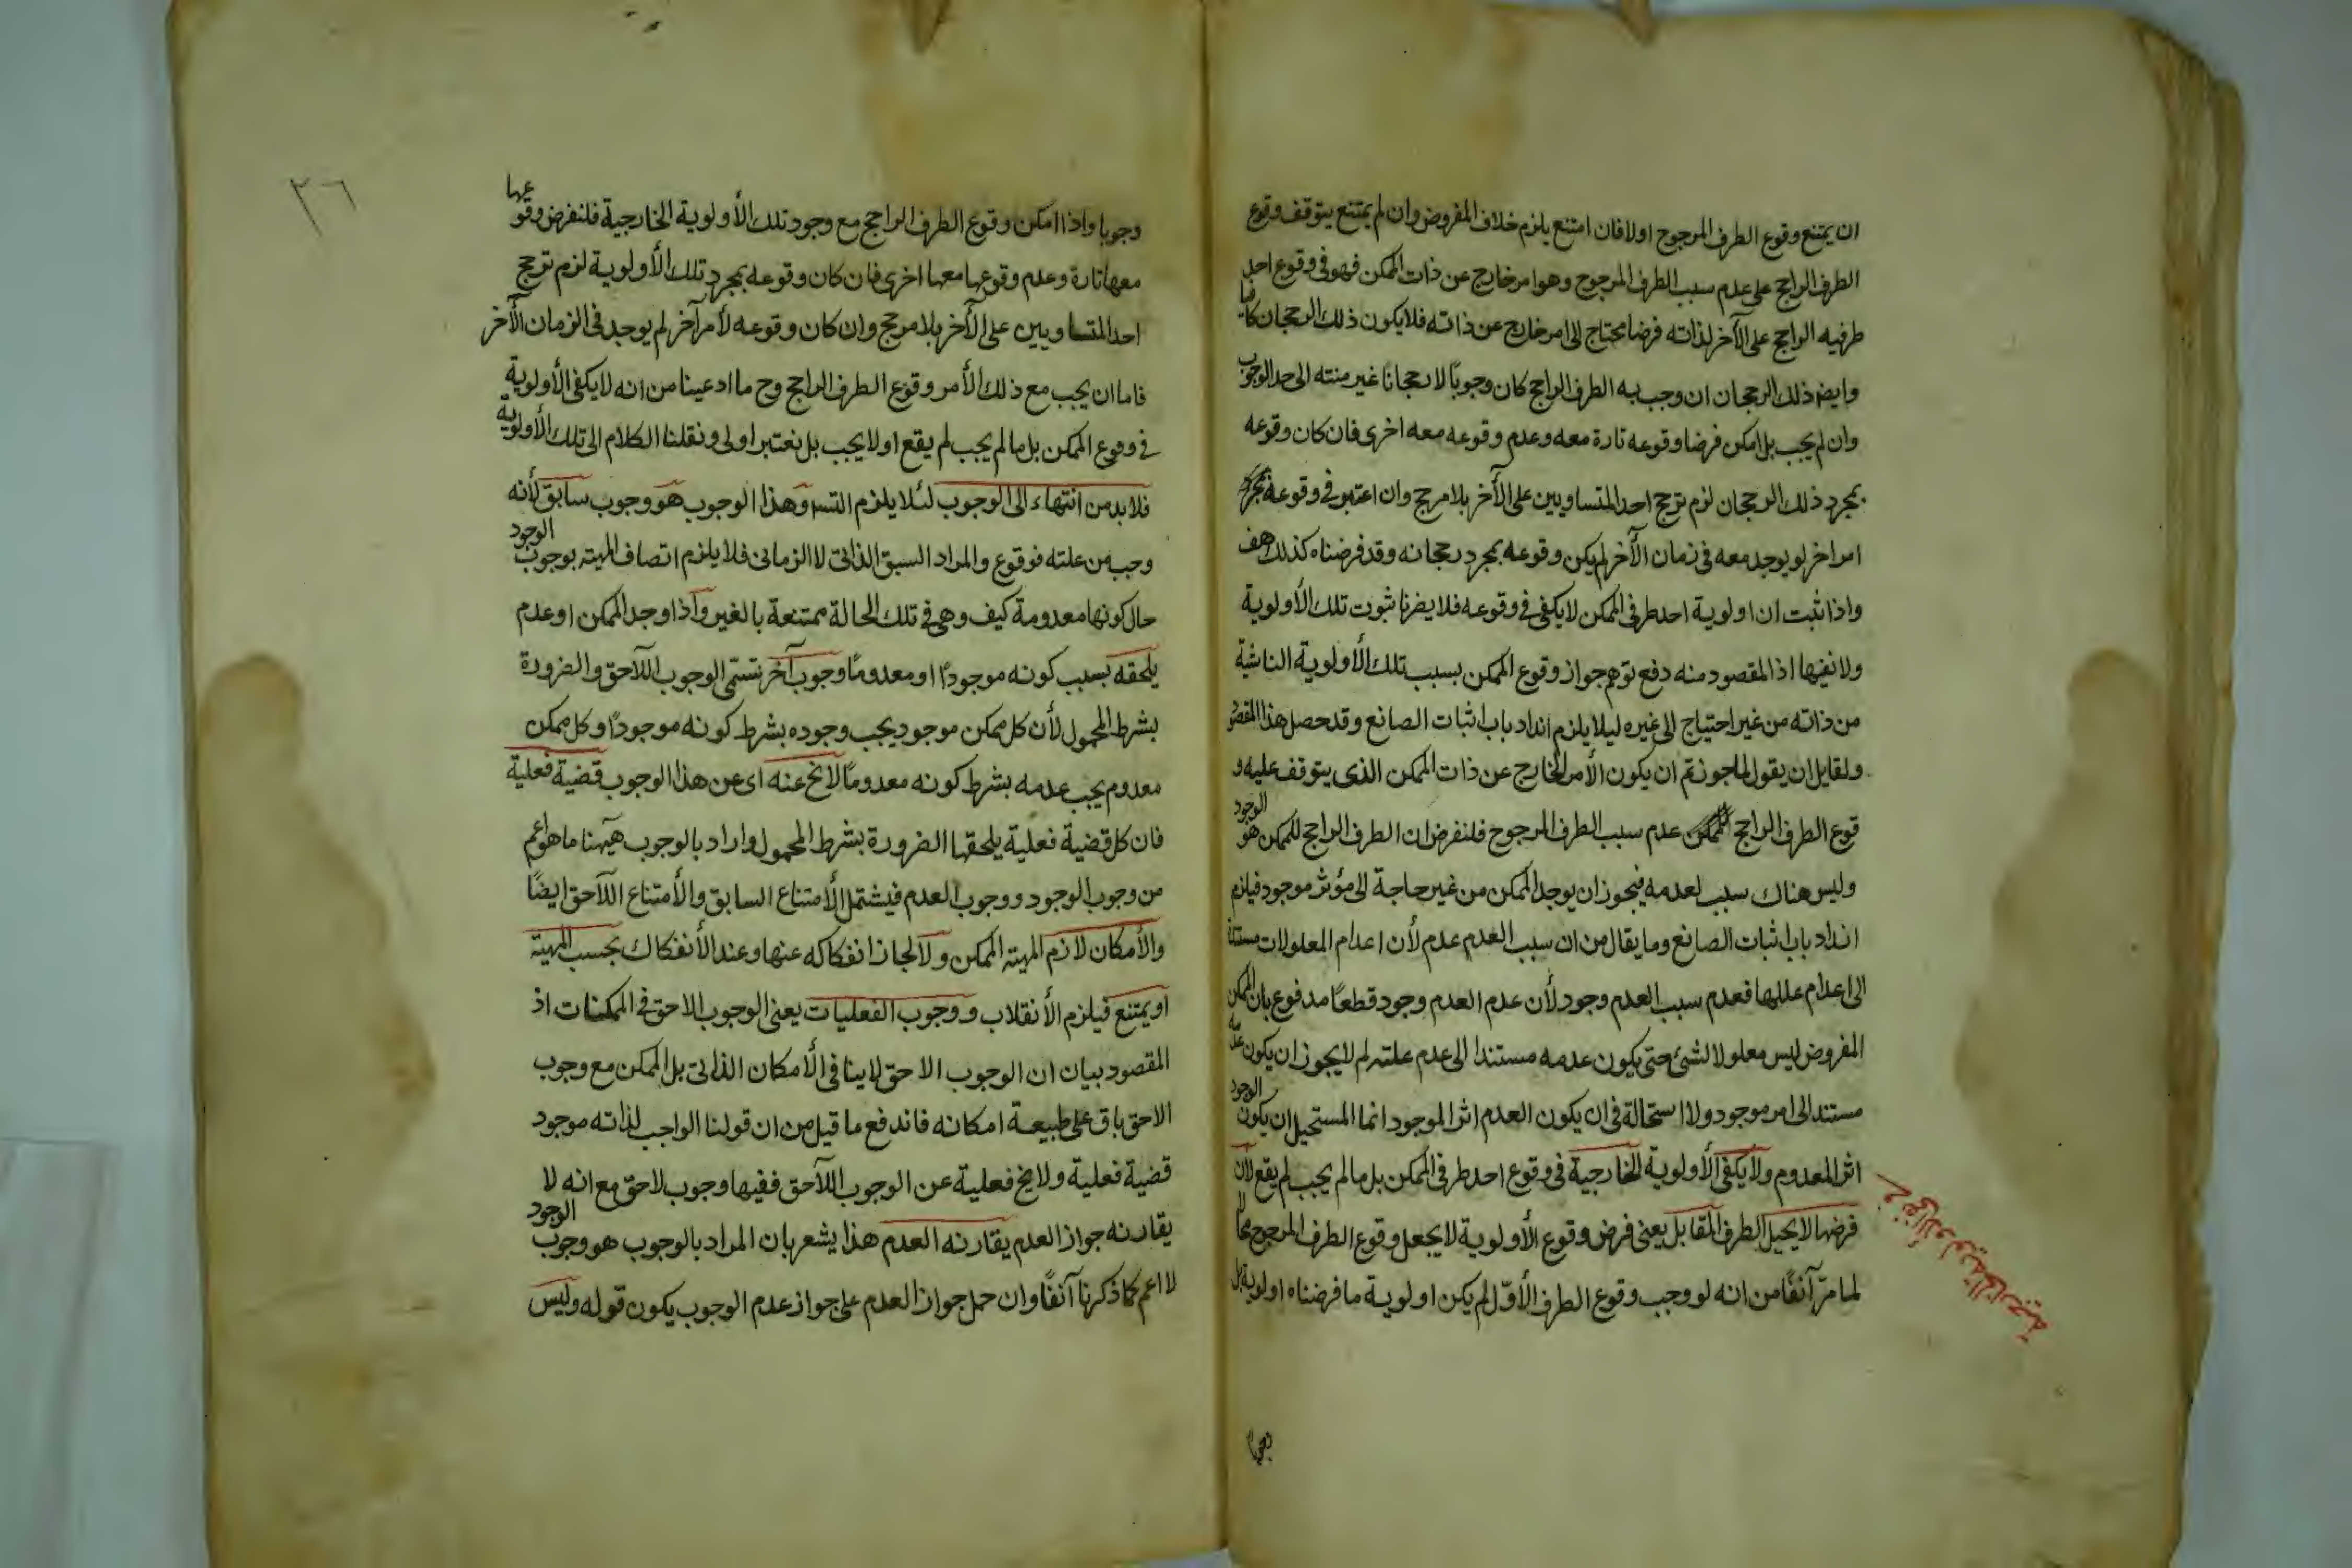 ان يمتنع وقوع الطرف المرجوح اولا فان امتنع يلزم خلاف المفروض وان لم يمتنع يتوقف وقوع
الطرف الراجح على عدم سبب الطرف المرجوح وهو امر خارج عن ذات الممكن فهو في وقوع احد
طرفيه الراجح على الآخر لذاته فرضا محتاج الى امر خارج عن ذاته فلا يكون ذلك الرجحان كافيا
وايضا ذلك الرجحان ان وجب به الطرف الراجح كان وجوباً لا رجحانا غير منته الى حد الوجوب
وان لم يجب بل امكن فرضا وقوعه تارة معه وعدم وقوعه معه اخرى فان كان وقوعه
بمجرد ذلك الرجحان لزم ترجح احد المتساويين على الآخر بلا مرجح وان اعتبر في وقوعه
امر اخر لو يوجد معه في زمان الآخر لم يكن وقوعه بمجرد رجحانه وقد فرضناه كذلك هف
واذا ثبت ان اولوية احد طرفي الممكن لا يكفي في وقوعه فلا يضرنا ثبوت تلك الأولوية
ولا نفيها اذ المقصود منه دفع توهم جواز وقوع الممكن بسبب تلك الأولوية الناشئة
من ذاته من غير احتياج الى غيره ليلا يلزم انداد باب اثبات الصانع وقد حصل هذا المقصود
ولقايل ان يقول لما جوزتم ان يكون الأمر الخارج عن ذات الممكن الذى يتوقف عليه و
قوع الطرف الراجح عدم سبب الطرف المرجوح فلنفرض ان الطرف الراجح للممكن هو الوجود
وليس هناك سبب لعدمه فيجوز ان يوجد الممكن من غير حاجة الى مؤثر موجود فيلزم
انداد باب اثبات الصانع وما يقال من ان سبب العدم عدم لأن اعدام المعلولات مستندة
الى اعدام عللها فعدم سبب العدم وجود لأن عدم العدم وجود قطعاً مدفوع بان الممكن
المفروض ليس معلولا لشئ حتى يكون عدمه مستندا الى عدم علته لم لا يجوز ان يكون عدمه
مستندا الى امر موجود ولا استحالة في ان يكون العدم اثر الموجود انما المستحيل ان يكون الوجود
اثر المعدوم ولا يكفي الأولوية الخارجية في وقوع احد طرفي الممكن بل ما لم يجب لم يقع لأن
فرضها لا يحيل الطرف المقابل يعنى فرض وقوع الأولوية لا يجعل وقوع الطرف المرجوح محالا
لما مرّ آنفًا من انه لو وجب وقوع الطرف الأوّل لم يكن اولوية ما فرضناه اولوية بل
الأولوية الخارجية
وجوبا
٢٦
وجوبا واذا امكن وقوع الطرف الراجح مع وجود تلك الأولوية الخارجية فلنفرض وقوعها
معها تارة وعدم وقوعها معها اخرى فان كان وقوعه بمجرد تلك الأولوية لزم ترجح
احد المتساويين على الآخر بلا مرجح وان كان وقوعه لأمر آخر لم يوجد في الزمان الآخر
فاما ان يجب مع ذلك الأمر وقوع الطرف الراجح وح ما ادعينا من انه لا يكفي الأولوية
في وقوع الممكن بل ما لم يجب لم يقع او لا يجب بل نعتبر اولى ونقلنا الكلام الى تلك الأولوية
فلا بد من انتهاء الى الوجوب لئلا يلزم التسـ وهذا الوجوب هو وجوب سابق لأنه
وجب من علته فوقوع والمراد السبق الذاتى لا الزمانى فلا يلزم اتصاف المهية بوجوب الوجود
حال كونها معدومة كيف وهي في تلك الحالة ممتنعة بالغير واذا وجد الممكن او عدم
يلحقه بسبب كونه موجودًا او معدومًا وجوب آخر تسمّى الوجوب اللاحق والضرورة
بشرط المحمول لأن كل ممكن موجود يجب وجوده بشرط كونه موجودًا وكل ممكن
معدوم يجب عدمه بشرط كونه معدومًا لا يخ عنه اى عن هذا الوجوب قضية فعلية
فان كل قضية فعلية يلحقها الضرورة بشرط المحمول واراد بالوجوب هيهنا ما هو اعم
من وجوب الوجود ووجوب العدم فيشتمل الأمتناع السابق والأمتناع اللاحق ايضًا
والأمكان لازم المهية الممكن ولا لجاز انفكاكه عنها وعند الأنفكاك بحسب المهية
او يمتنع فيلزم الأنقلاب ووجوب الفعليات يعنى الوجوب الاحق في الممكنات اذ
المقصود بيان ان الوجوب الاحق لا ينافي الأمكان الذاتى بل الممكن مع وجوب
الاحق باق على طبيعة امكانه فاندفع ما قيل من ان قولنا الواجب لذاته موجود
قضية فعلية ولا يخ فعلية عن الوجوب اللاحق ففيها وجوب لاحق مع انه لا
يقارنه جواز العدم يقارنه العدم هذا يشعر بان المراد بالوجوب هو وجوب الوجود
لا اعم كما ذكرنا آنفًا وان حمل جواز العدم على جواز عدم الوجوب يكون قوله وليس